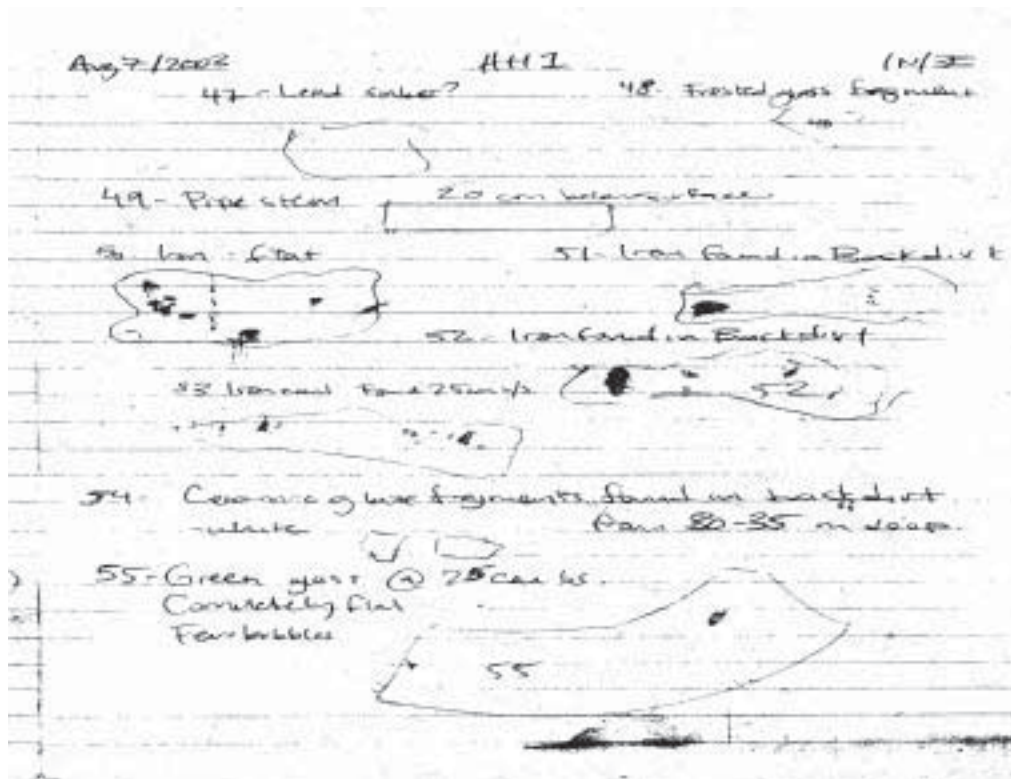 Aug 7/2003 HH1 1N/
47 - Lead sinker? 48. Frosted glass fragment
49 - Pipe stem 20 cm below surface
50. Iron - flat 51 - Iron found in Backdirt
52 - Iron found in Backdirt
53 Iron nail Found 25cm b/s
52
54 - Ceramic glaze fragments found in backdirt
- white From 30-35 cm deep.
55 - Green glass @ 25 cm bs.
Completely flat
Few bubbles
55